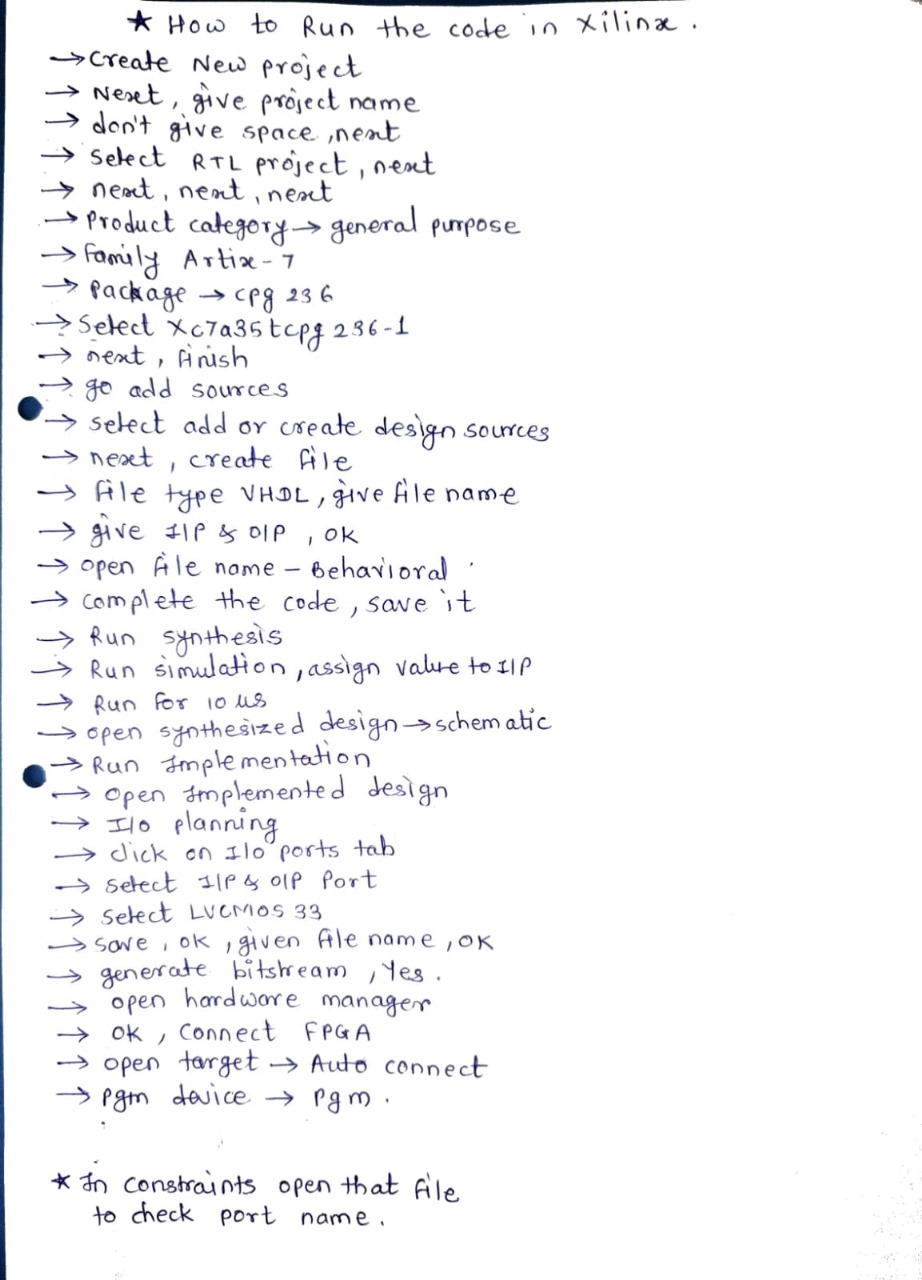 ★ How to Run the code in Xilinx.
→ Create New project
→ Next, give project name
→ don't give space, next
→ Select RTL project, next
→ next, next, next
→ Product category → general purpose
→ Family Artix-7
→ Package → cpg 236
→ Select Xc7a35tcpg 236-1
→ next, finish
→ go add sources
→ select add or create design sources
→ next, create file
→ file type VHDL, give file name
→ give I/P & O/P, ok
→ open file name - Behavioral
→ complete the code, save it
→ Run synthesis
→ Run simulation, assign value to I/P
→ Run for 10 us
→ open synthesized design → schematic
→ Run Implementation
→ Open Implemented design
→ I/o planning
→ click on I/o ports tab
→ Select I/P & O/P Port
→ Select LVCMOS 33
→ save, ok, given file name, OK
→ generate bitstream, Yes.
→ open hardware manager
→ OK, Connect FPGA
→ open target → Auto connect
→ Pgm device → Pgm.
★ In constraints open that file
to check port name.